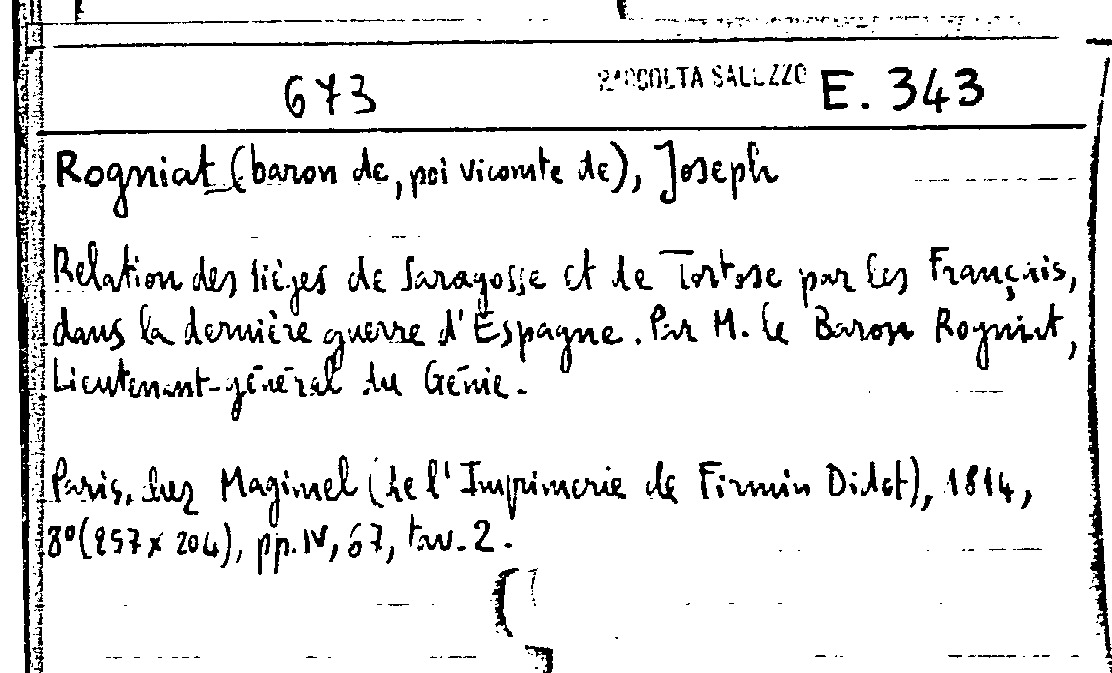 673 RACCOLTA SALUZZO E. 343
Rogniat (baron de, poi vicomte de), Joseph
Relation des sièges de Saragosse et de Tortose par les Français,
dans la dernière guerre d'Espagne. Par M. le Baron Rogniat,
Lieutenant-général du Génie.
Paris, chez Magimel (de l'Imprimerie de Firmin Didot), 1814,
8° (257 x 204), pp. IV, 67, tav. 2.